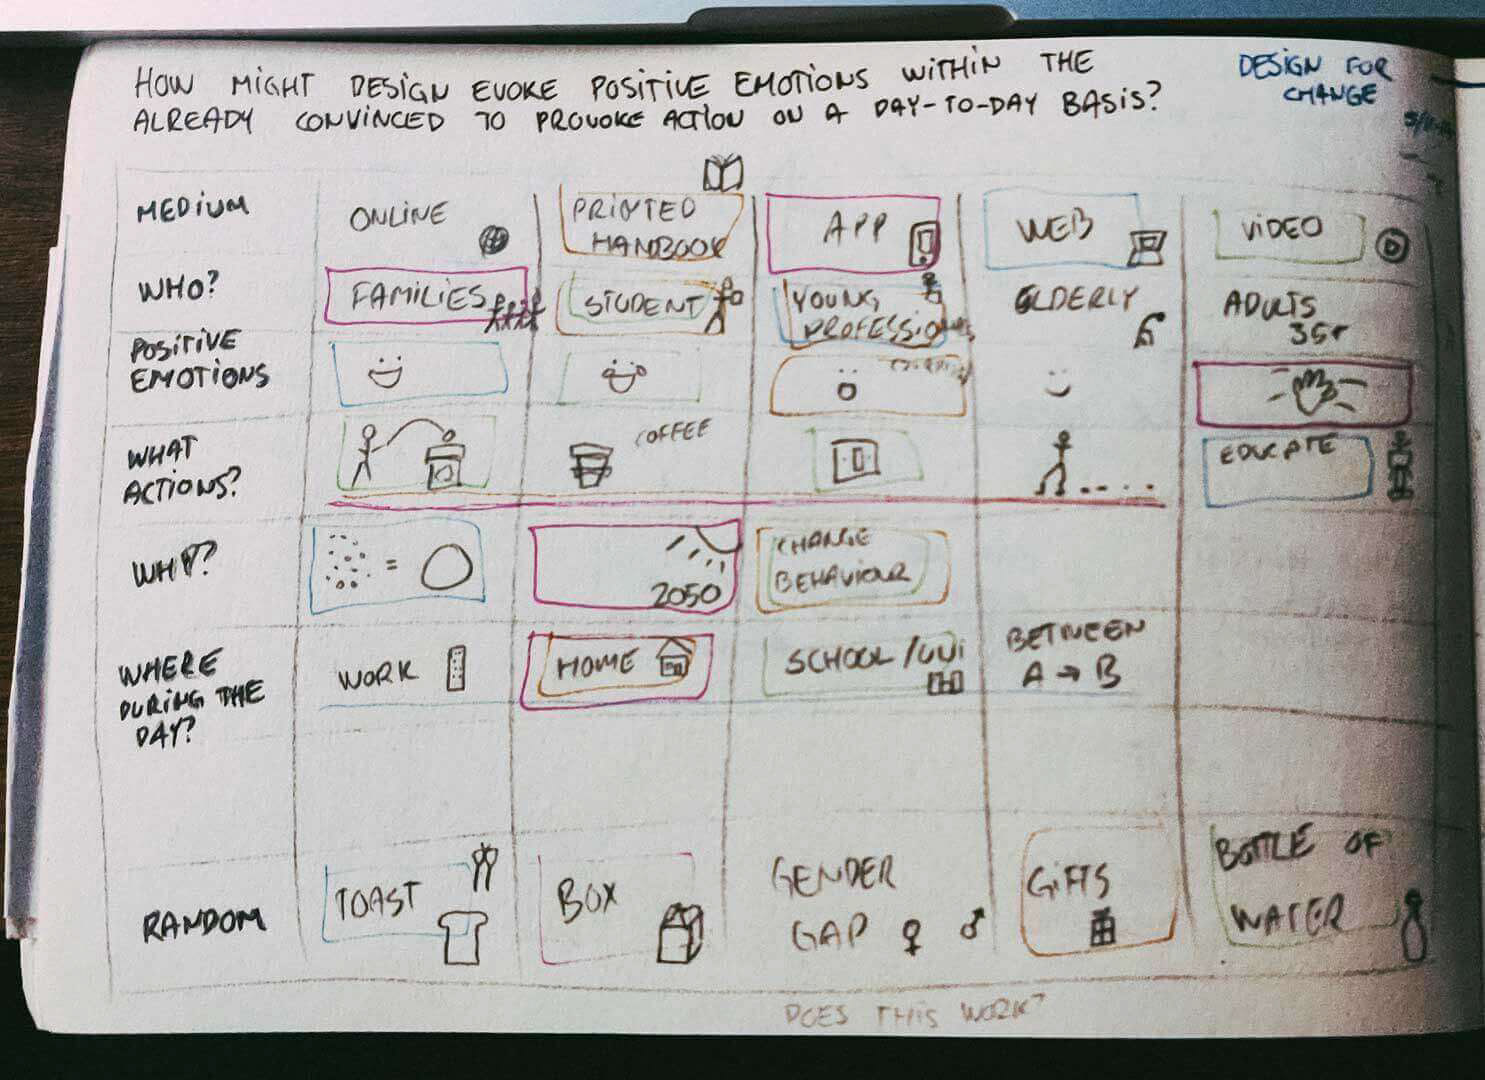 HOW MIGHT DESIGN EVOKE POSITIVE EMOTIONS WITHIN THE
ALREADY CONVINCED TO PROVOKE ACTION ON A DAY-TO-DAY BASIS?
DESIGN FOR
CHANGE
MEDIUM
ONLINE
PRINTED
HANDBOOK
APP
WEB
VIDEO
WHO?
FAMILIES
STUDENT
YOUNG
PROFESSIONALS
ELDERLY
ADULTS
35+
POSITIVE
EMOTIONS
WHAT
ACTIONS?
COFFEE
EDUCATE
WHY?
=
2050
CHANGE
BEHAVIOUR
WHERE
DURING THE
DAY?
WORK
HOME
SCHOOL/UNI
BETWEEN
A → B
RANDOM
TOAST
BOX
GENDER
GAP ♀ ♂
GIFTS
BOTTLE OF
WATER
DOES THIS WORK?